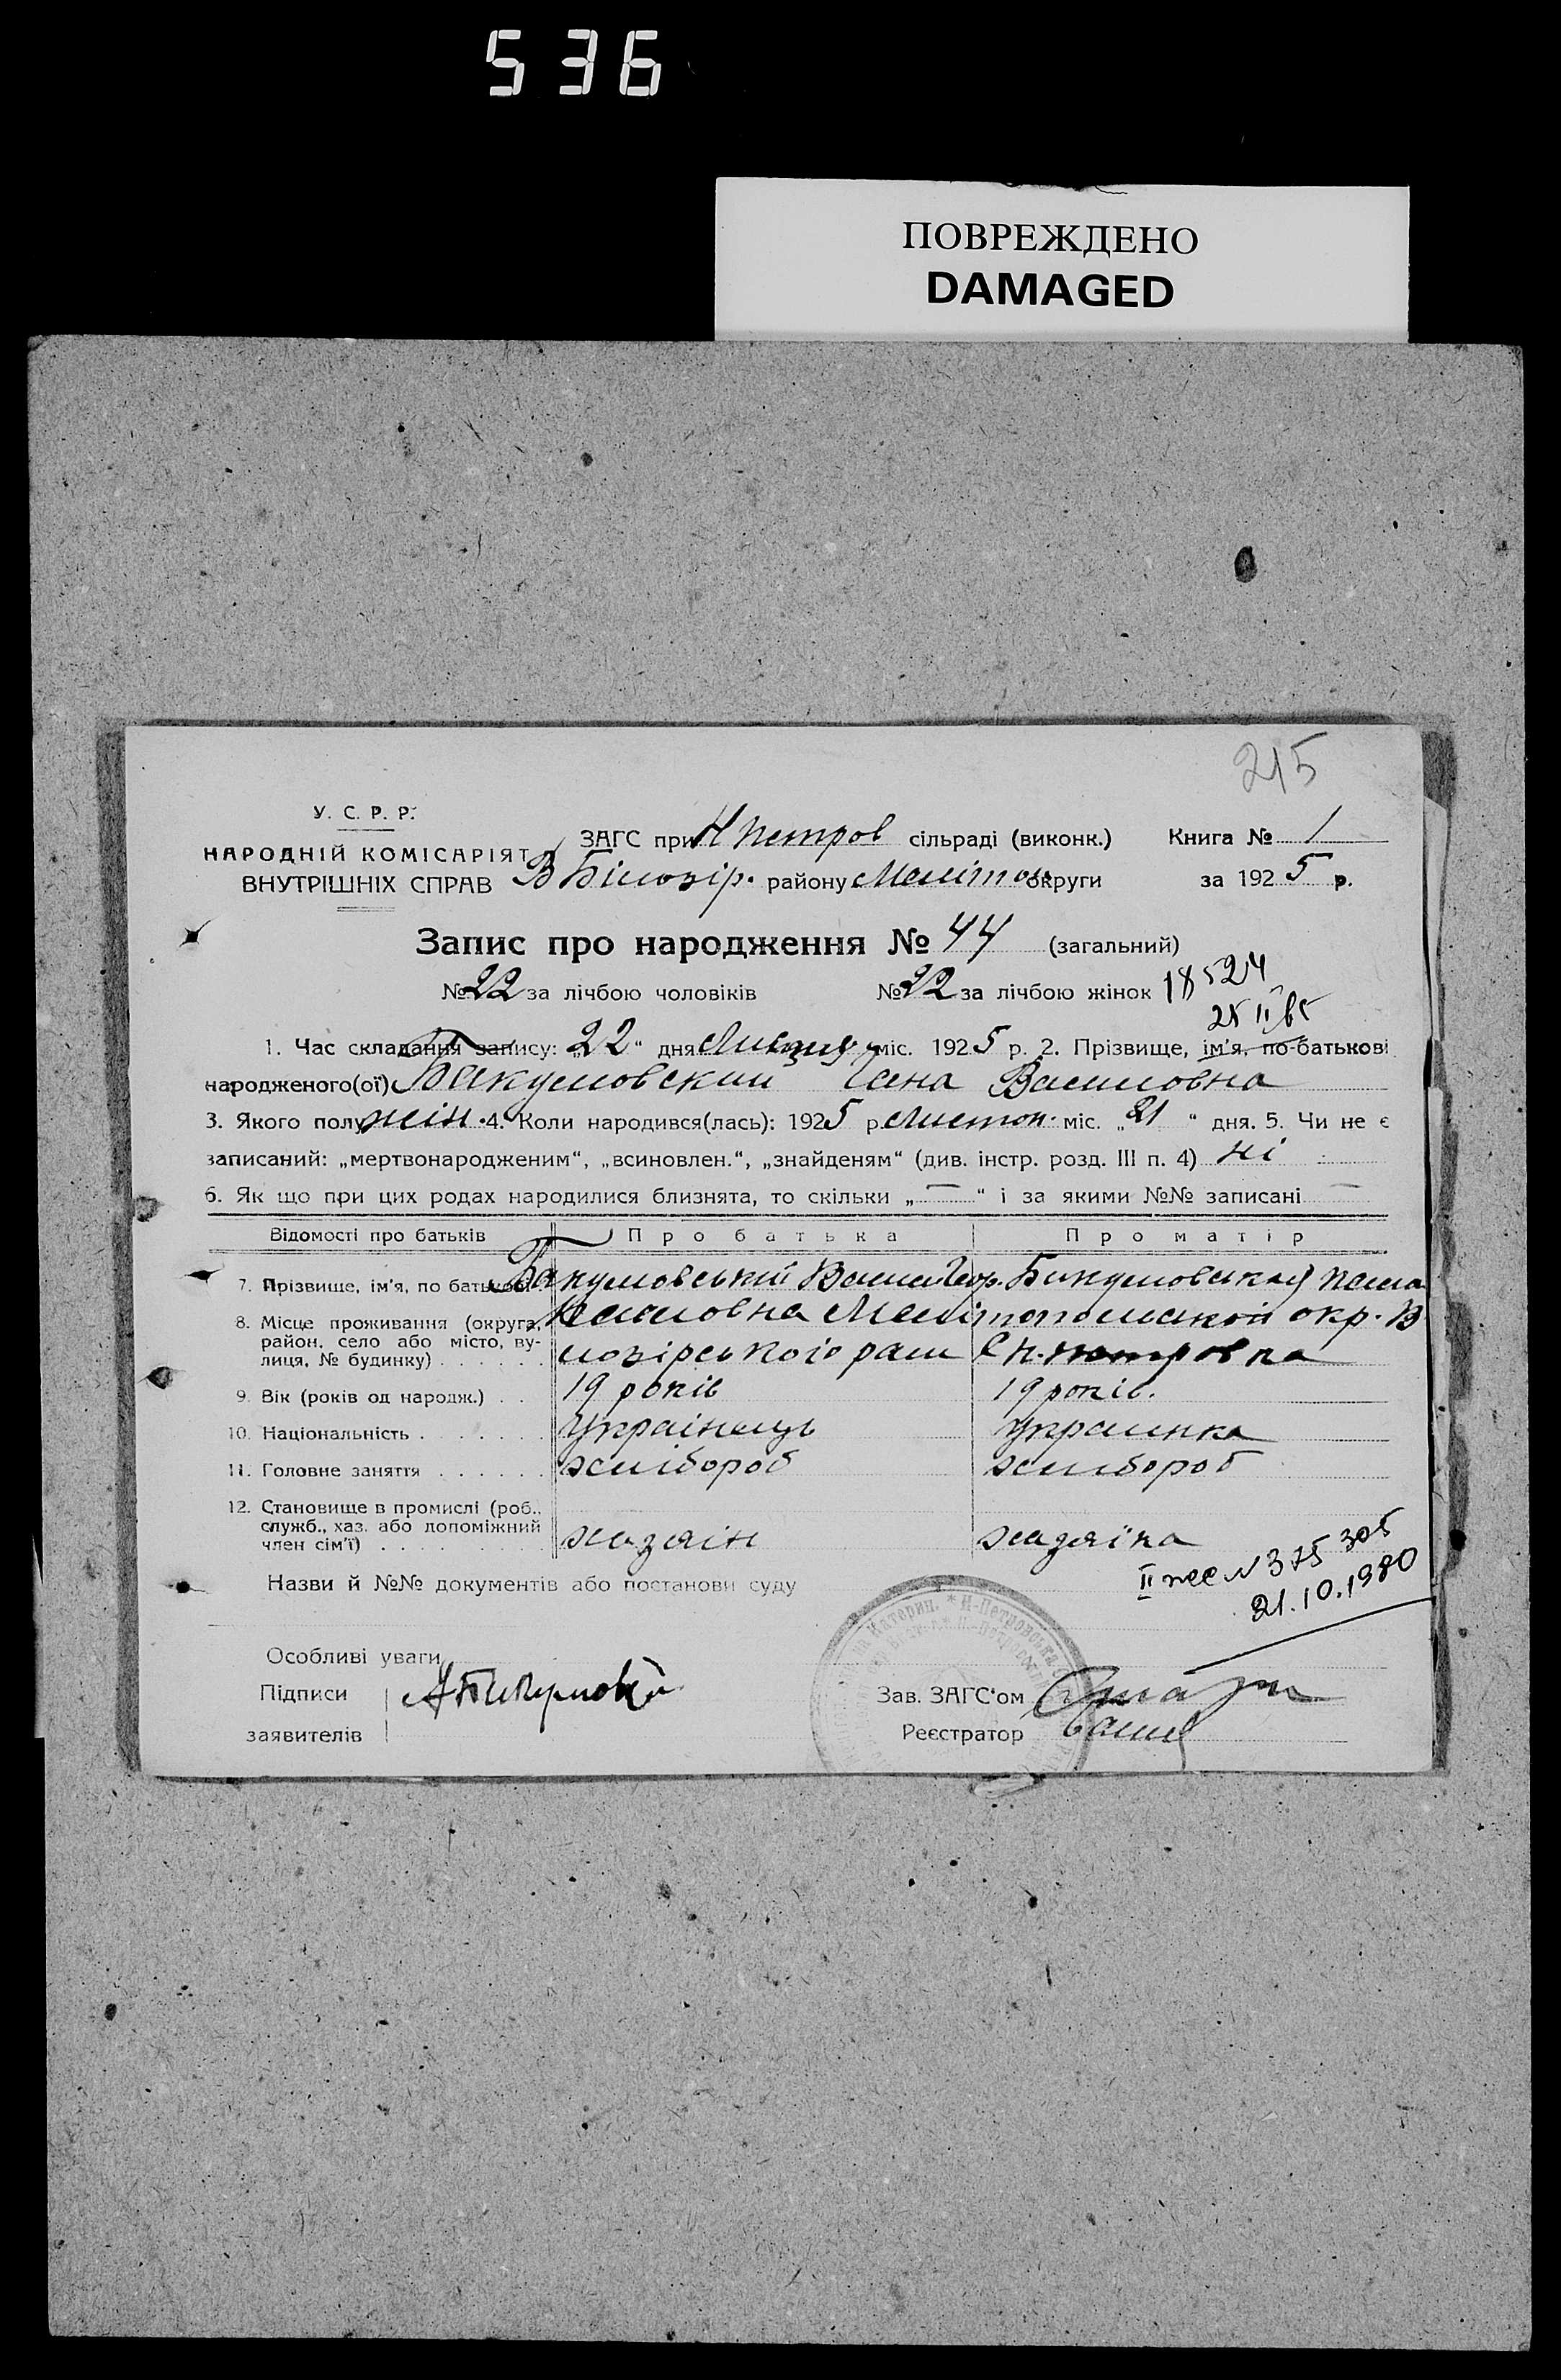 536
ПОВРЕЖДЕНО
DAMAGED
215
У. С. Р. Р.
НАРОДНІЙ КОМІСАРІЯТ
ВНУТРІШНІХ СПРАВ
ЗАГС при Н Петров сільраді (виконк.) Книга № 1
В Білозір. району Меліто округи за 1925 р.
Запис про народження № 44 (загальний)
№ 22 за лічбою чоловіків № 22 за лічбою жінок 18524
25 II
1. Час складання запису: „22“ дня міс. 1925 р. 2. Прізвище, ім'я, по-батькові
народженого(ої) Бакумовский Василовна
3. Якого полу жін. 4. Коли народився(лась): 1925 р. Листоп. міс. „21“ дня. 5. Чи не є
записаний: „мертвонародженим“, „всиновлен.“, „знайденям“ (див. інстр. розд. III п. 4) ні
6. Як що при цих родах народилися близнята, то скільки „—“ і за якими №№ записані —
Відомості про батьків Про батька Про матір
7. Прізвище, ім'я, по батькові Бакумовський Васил Бакумовская
8. Місце проживання (округа, район, село або місто, вулиця, № будинку) . . . . . . Мелітопольской окр. В
лозірського раш с Н. Петровка
9. Вік (років од народж.) . . 19 років 19 років.
10. Національність . . . . . . . Українець Украинка
11. Головне заняття . . . . . . хлібороб хлибороб
12. Становище в промислі (роб., служб., хаз. або допоміжний член сім'ї) . . . . . . . . хазяін хазяіка
Назви й №№ документів або постанови суду
II № 375305
21.10.1980
Особливі уваги
Підписи
заявителів
Зав. ЗАГС'ом
Реєстратор